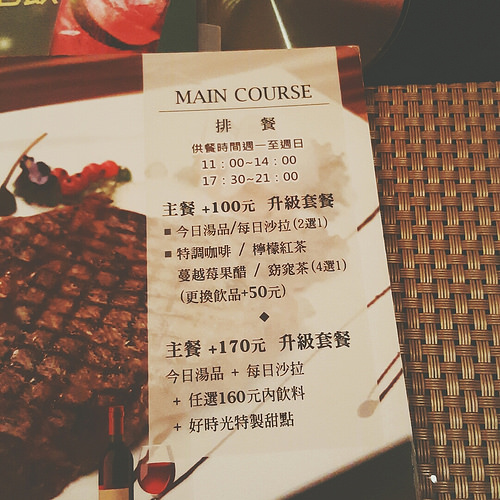 MAIN COURSE
排 餐
供餐時間週一至週日
11：00~14：00
17：30~21：00
主餐 +100元 升級套餐
■ 今日湯品/每日沙拉(2選1)
■ 特調咖啡 / 檸檬紅茶
蔓越莓果醋 / 窈窕茶(4選1)
(更換飲品+50元)
◆
主餐 +170元 升級套餐
今日湯品 + 每日沙拉
+ 任選160元內飲料
+ 好時光特製甜點